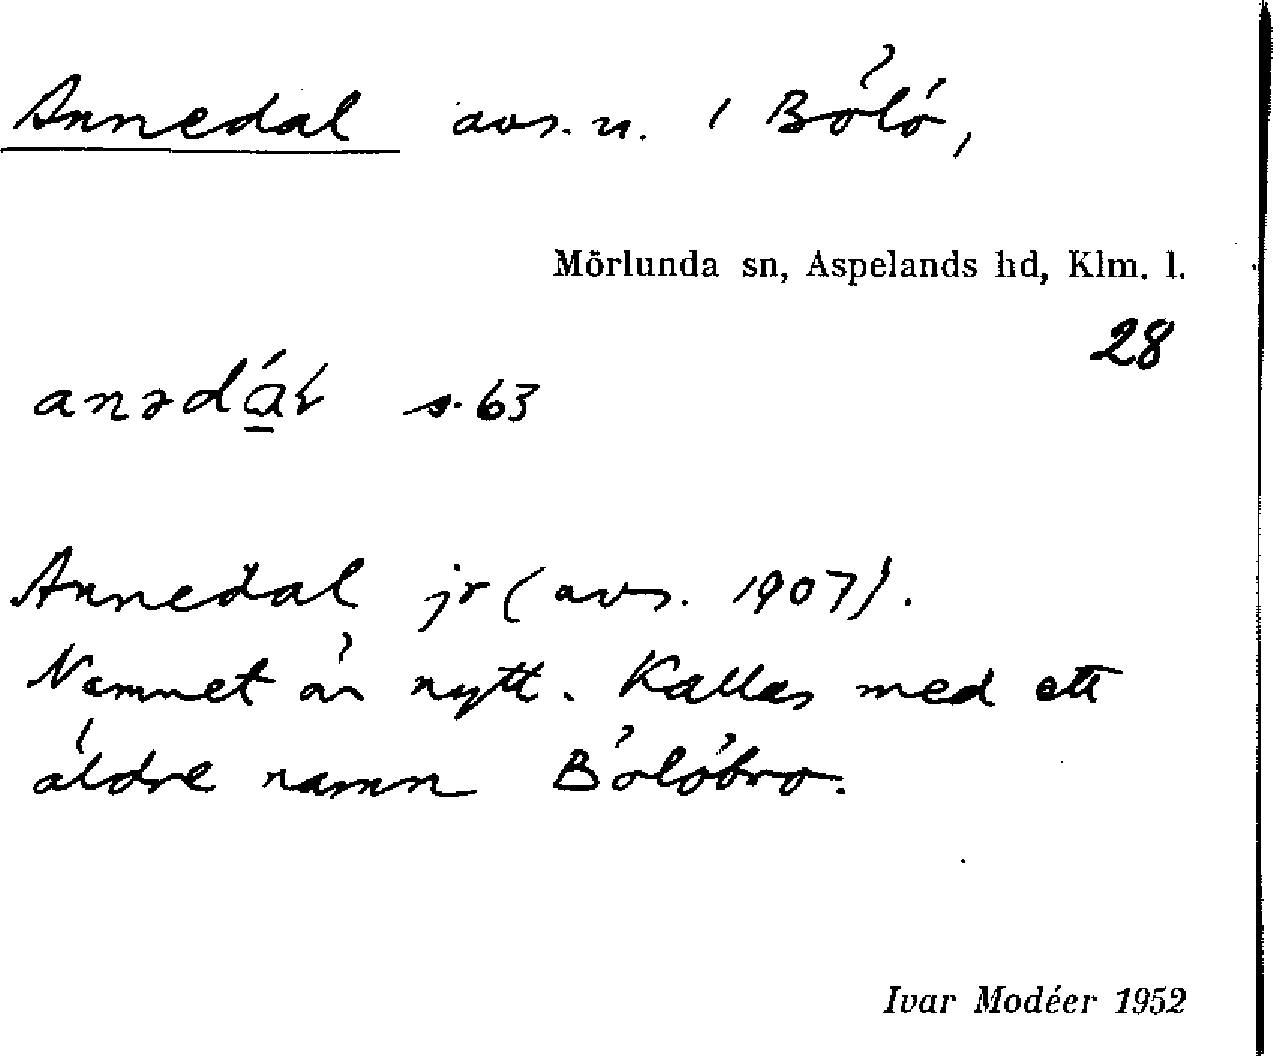 Annedal avs. n. i Bölö,
Mörlunda sn, Aspelands hd, Klm. l.
28
anədá̱l s. 63
Annedal jr (avs. 1907).
Namnet är nytt. Kallas med ett
äldre namn Bölöbro.
Ivar Modéer 1952